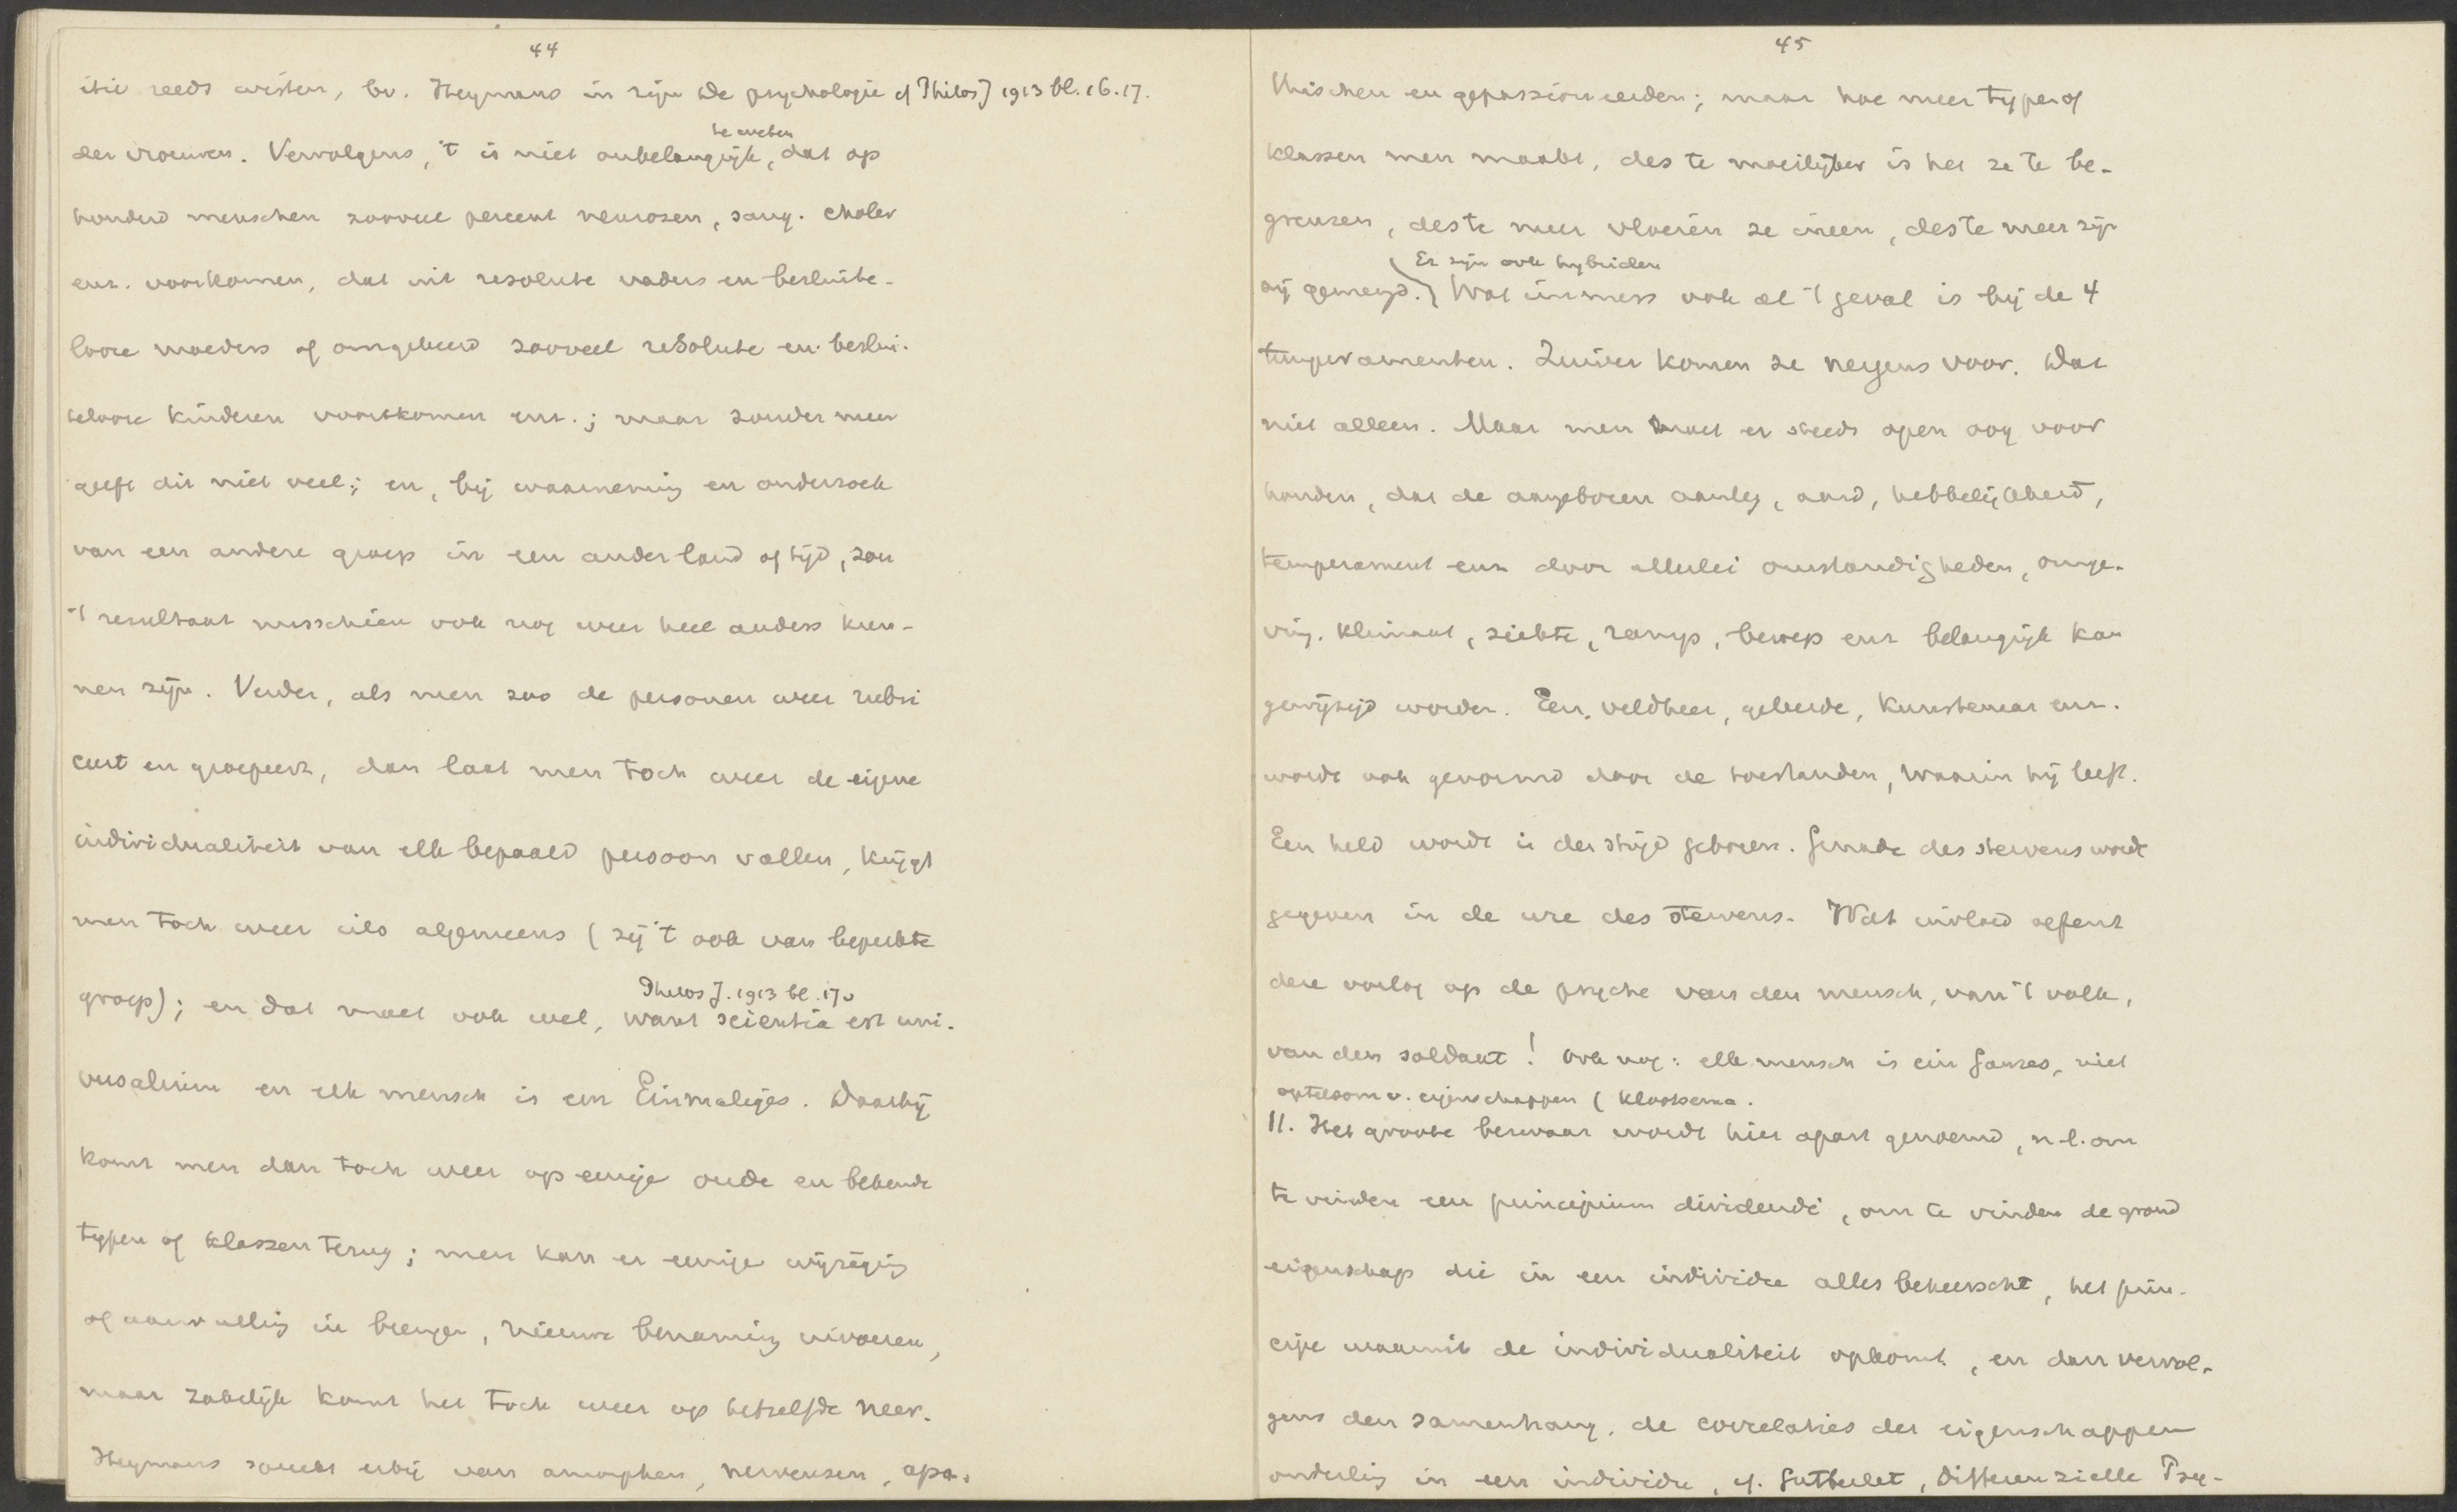 44
itie reeds wisten, bv. Heymans in zijn de psychologie cf Philos J 1913 bl. 16.17.
te weten
der vrouwen. Vervolgens, 't is niet onbelangrijk, dat op
honderd menschen zooveel percent nerveuzen, sang. choler
enz. voorkomen, dat uit resolute vaders en besluite-
looze moeders of omgekeerd zooveel resolute en beslui-
telooze kinderen voortkomen enz.; maar zonder meer
geeft dit niet veel; en, bij waarneming en onderzoek
van een andere groep in een ander land of tijd, zou
't resultaat misschien ook nog weer heel anders kun-
nen zijn. Verder, als men zoo de personen weer rubri
ceert en groepeert, dan laat men toch weer de eigene
individualiteit van elk bepaald persoon vallen, krijgt
men toch weer iets algemeens (zij 't ook van beperkte
Philos J. 1913 bl. 170
groep); en dat moet ook wel, want scientia est uni-
versalium en elk mensch is een Einmaliges. Daarbij
komt men dan toch weer op eenige oude en bekende
typen of klassen terug; men kan er eenige wijziging
of aanvulling in brengen, nieuwe benaming invoeren,
maar zakelijk komt het toch weer op hetzelfde neer.
Heymans spreekt erbij van amorphen, nerveuzen, apa-
45
thischen en gepassioneerden; maar hoe meer typen of
klassen men maakt, des te moeilijker is het ze te be-
grenzen, des te meer vloeien ze ineen, des te meer zijn
Er zijn ook hybriden
zij gemengd. Wat immers ook al 't geval is bij de 4
temperamenten. Zuiver komen ze nergens voor. Dat
niet alleen. Maar men moet er steeds open oog voor
houden, dat de aangeboren aanleg, aard, hebbelijkheid,
temperament enz door allerlei omstandigheden, omge-
ving, klimaat, ziekte, ramp, beroep enz belangrijk kan
gewijzigd worden. Een veldheer, geleerde, kunstenaar enz.
wordt ook gevormd door de toestanden, waarin hij leeft.
Een held wordt in den strijd geboren. Genade des stervens wordt
gegeven in de ure des stervens. Wat invloed oefent
deze oorlog op de psyche van den mensch, van 't volk,
van den soldaat! Ook nog: elk mensch is ein Ganzes, niet
optelsom v. eigenschappen (Klooskerna.
11. Het groote bezwaar wordt hier apart genoemd, n.l. om
te vinden een principium dividendi, om te vinden de grond
eigenschap die in een individu alles beheerscht, het prin-
cipe waaruit de individualiteit opkomt, en dan vervol-
gens den samenhang, de correlaties der eigenschappen
onderling in een individu, cf. Gutberlet, Differenzielle Psy-